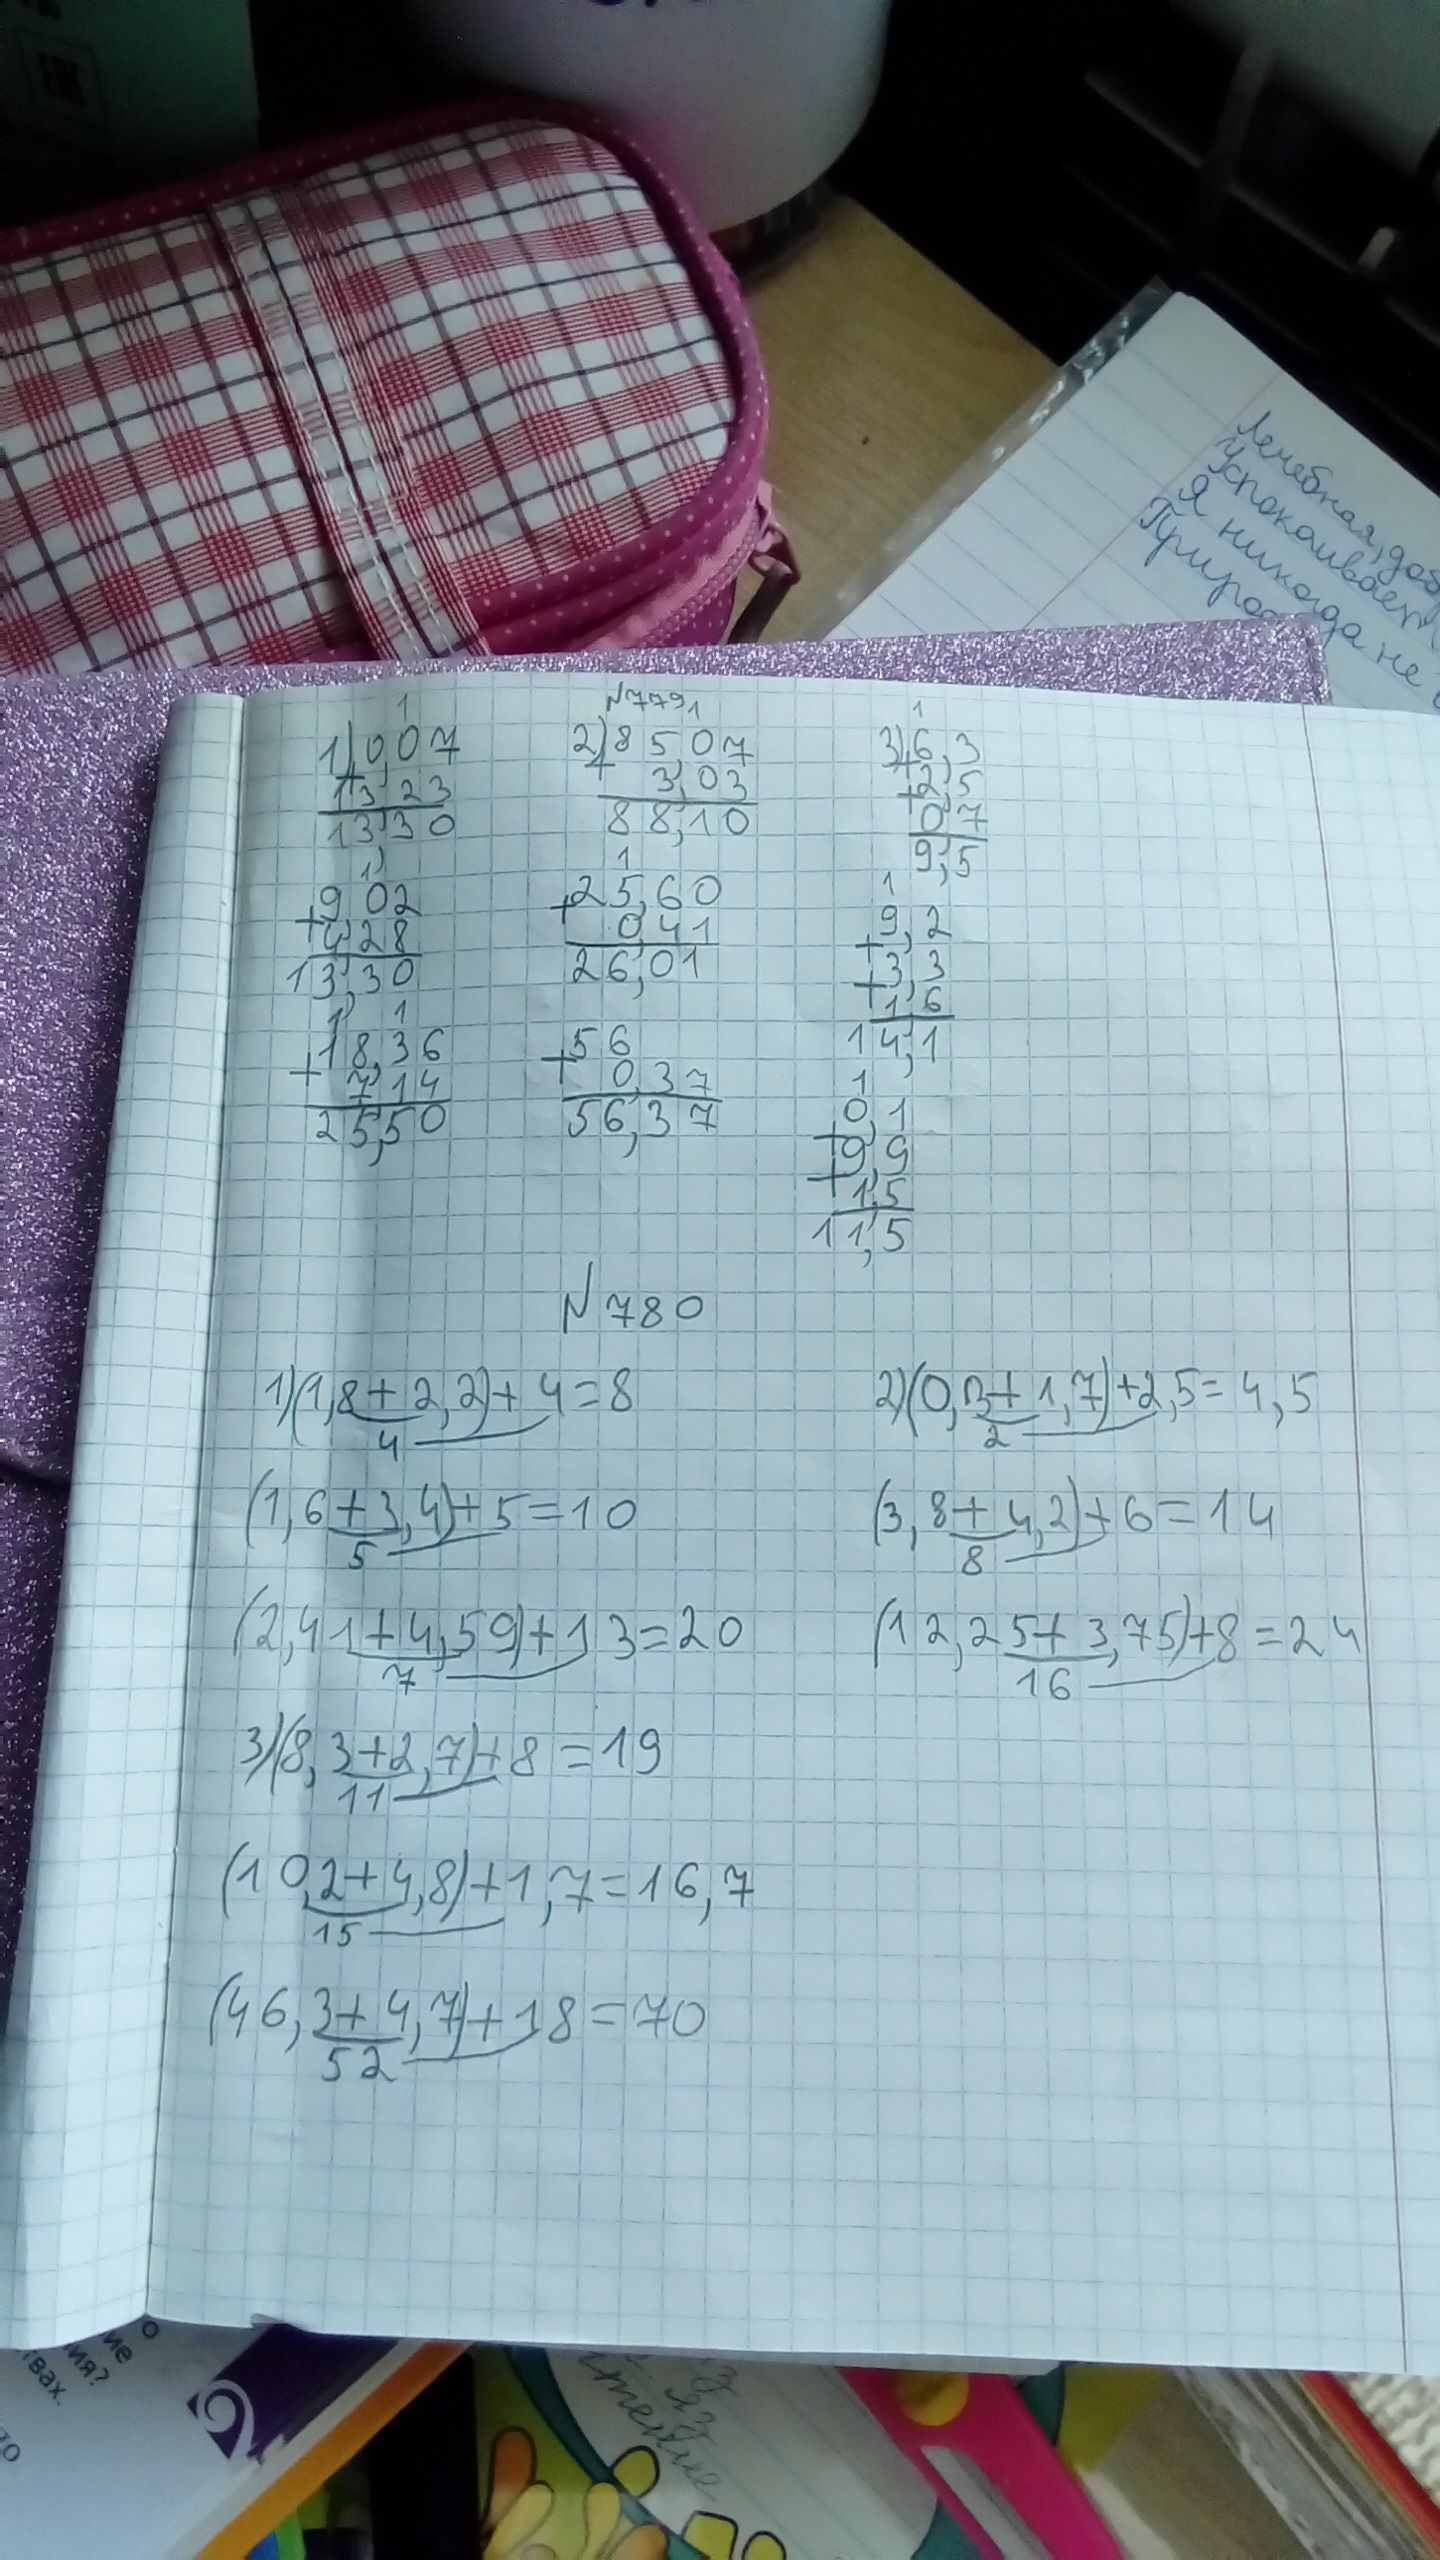 ЕАС
Лечебная, доб
Успокаивает
Я никогда не
Природ
№779
1
1) 0,07
+
13,23
13,30
1
9,02
+
4,28
13,30
1 1
18,36
+
7,14
25,50
1
2) 85,07
+
3,03
88,10
1
25,60
+
0,41
26,01
56
+
0,37
56,37
1
3) 6,3
+
2,5
+
0,7
9,5
1
9,2
+
3,3
+
1,6
14,1
1
0,1
+
9,9
+
1,5
11,5
№780
1) (1,8+2,2)+4=8
4
(1,6+3,4)+5=10
5
(2,41+4,59)+13=20
7
2) (0,3+1,7)+2,5=4,5
2
(3,8+4,2)+6=14
8
(12,25+3,75)+8=24
16
3) (8,3+2,7)+8=19
11
(10,2+4,8)+1,7=16,7
15
(46,3+4,7)+18=70
52
о
ие
ия?
вах.